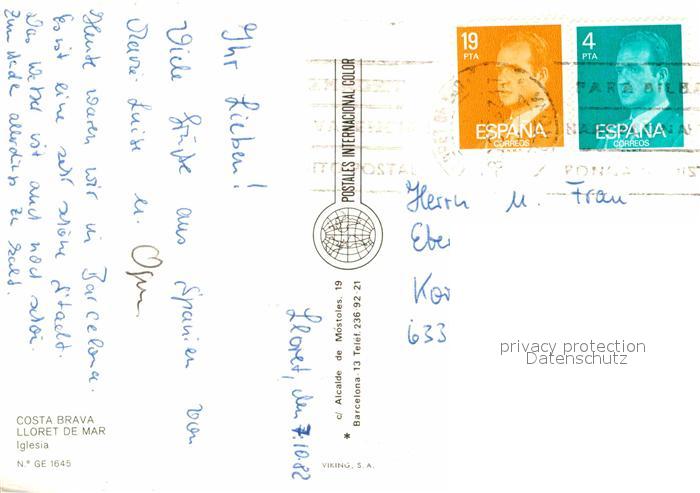 Lloret, den 7.10.82
Ihr Lieben!
Viele Grüße aus Spanien von
Marie-Luise u.
Heute waren wir in Barcelona.
Es ist eine sehr schöne Stadt.
Das Wetter ist auch noch schön.
Zum Bade allerdings zu kalt.
COSTA BRAVA
LLORET DE MAR
Iglesia
N.º GE 1645
POSTALES INTERNACIONAL COLOR
c/ Alcalde de Móstoles, 19
Barcelona-13 Telef. 236 92 21
VIKING, S. A.
19
PTA
ESPAÑA
CORREOS
4
PTA
ESPAÑA
CORREOS
PARA BILBA
Herrn u. Frau
Eber
Kor
633
privacy protection
Datenschutz